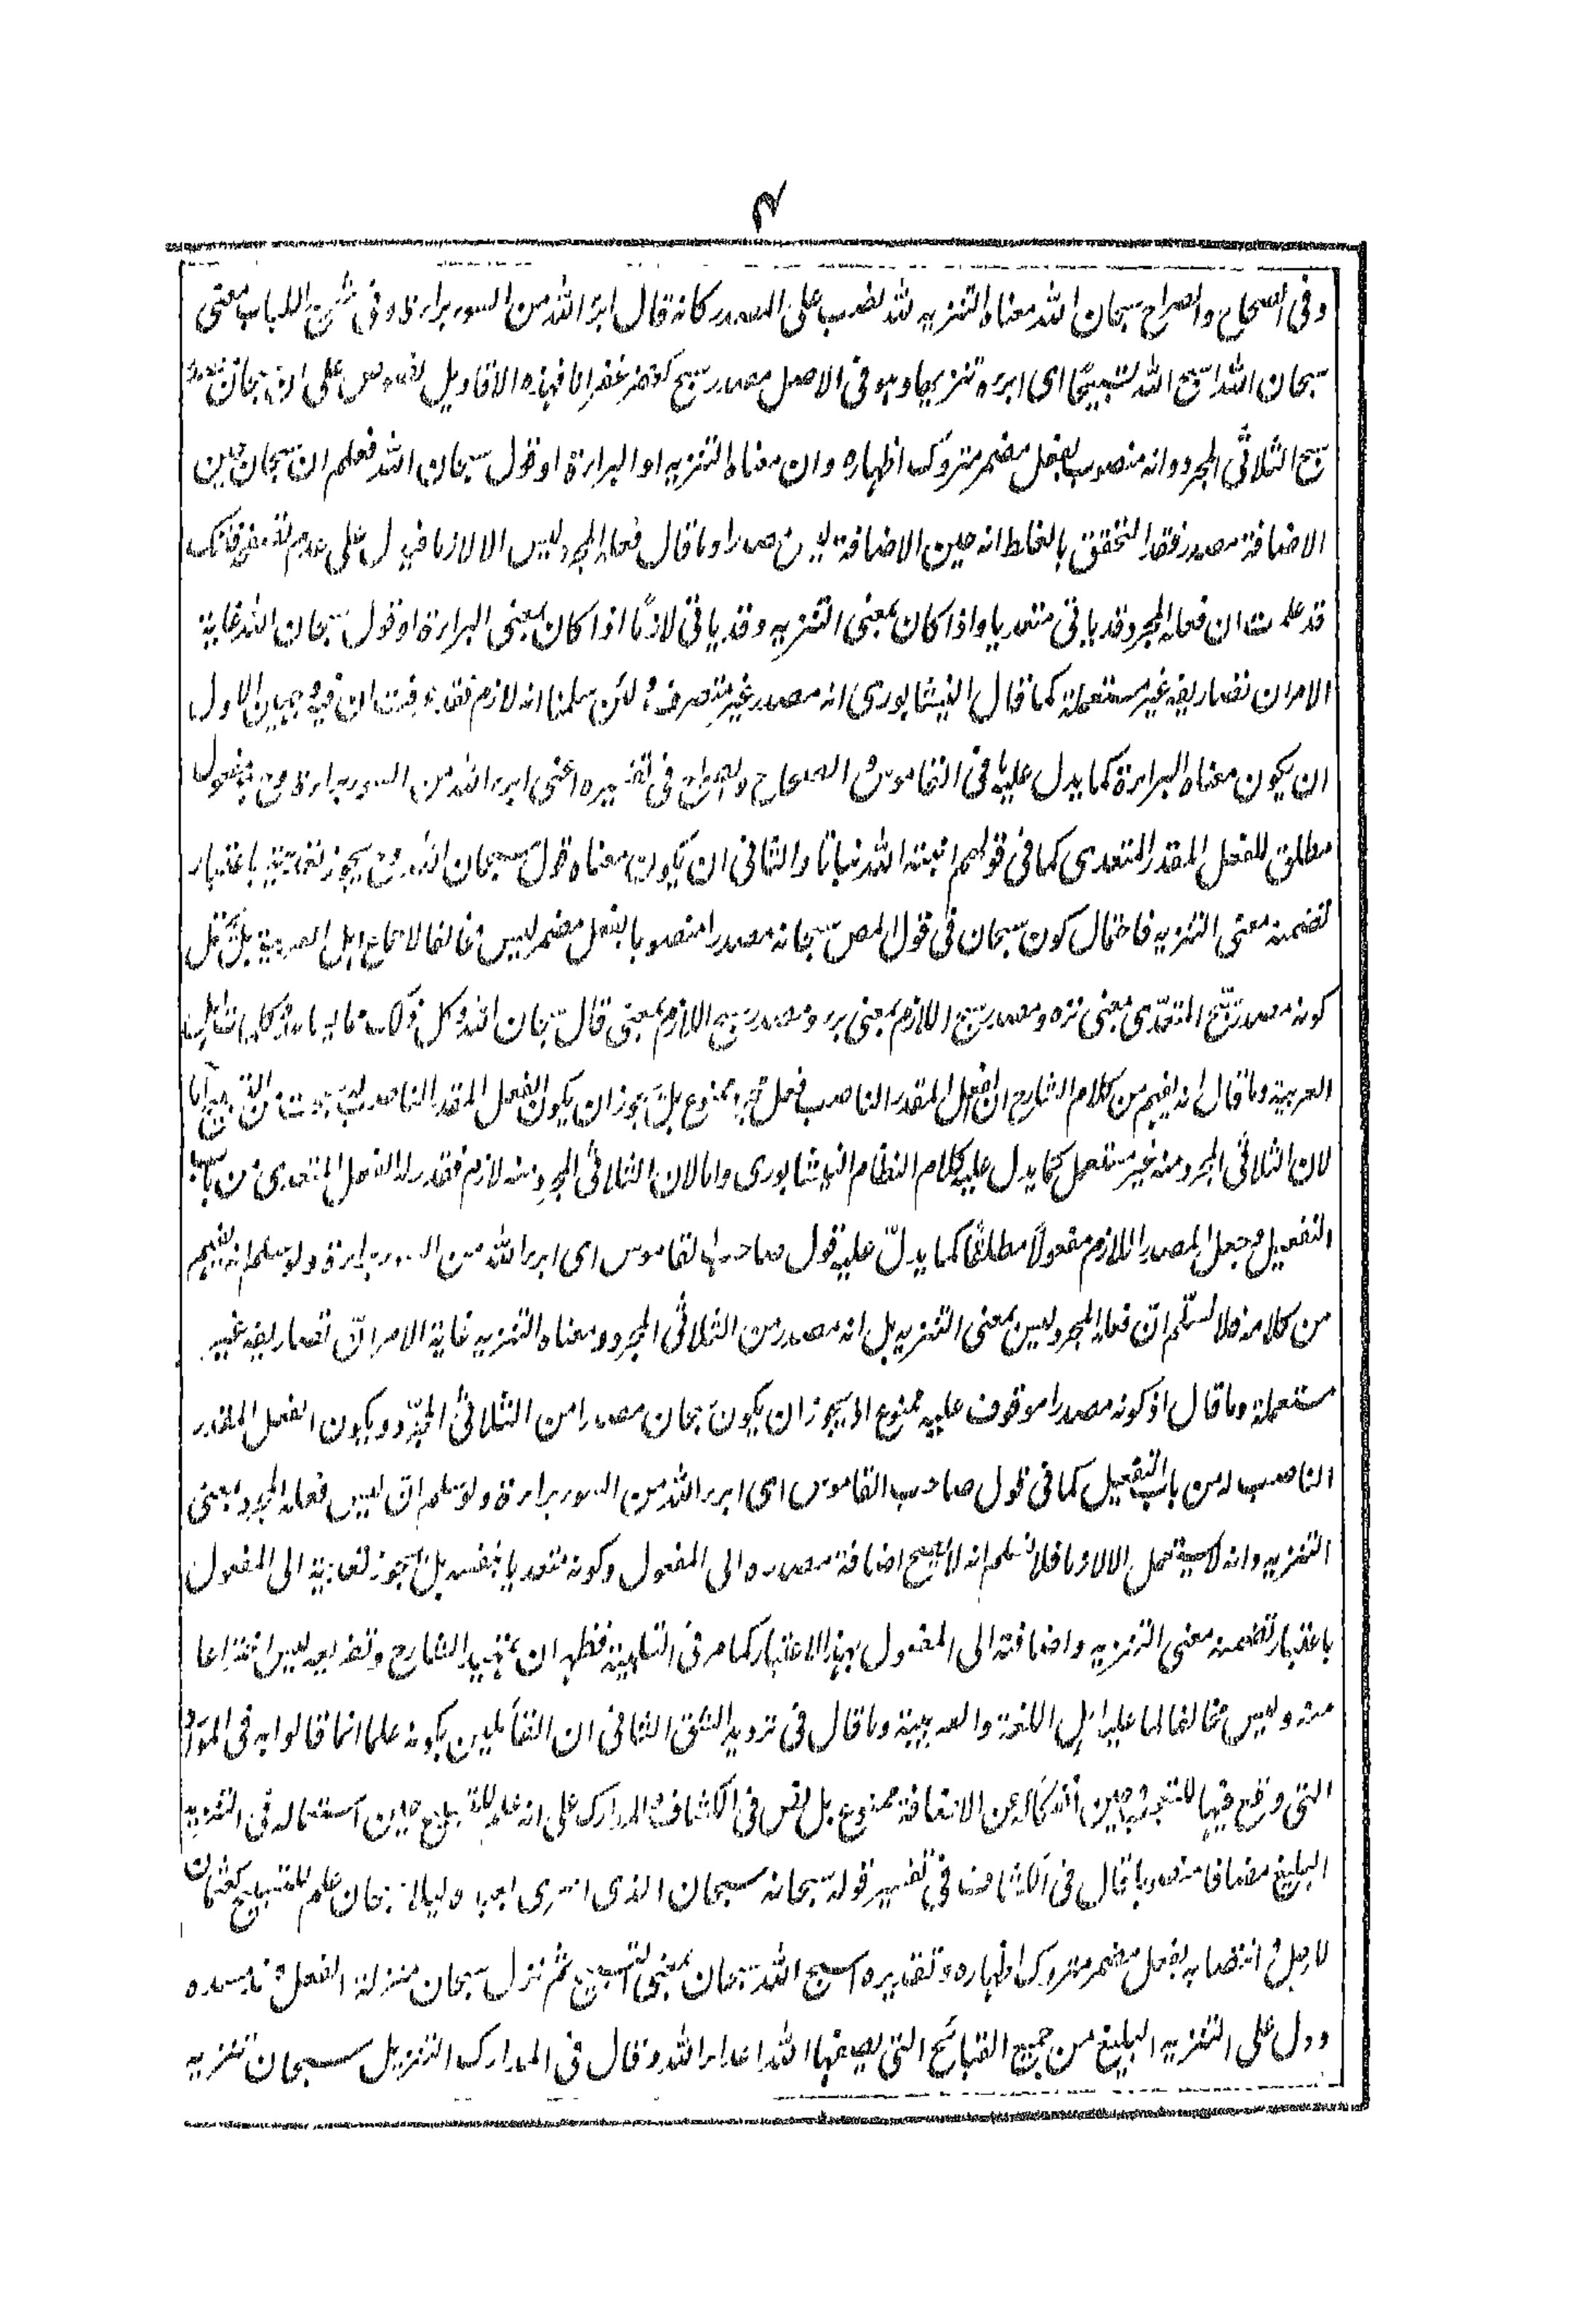 ٤
وفى الصحاح والصراح سبحان الله معناه التنزيه لله نصب على المصدر كانه قال ابرئ الله من السوء براءة وفى شرح اللباب معنى
سبحان الله اسبح الله تسبيحا اى ابرءه تنزيها وهو فى الاصل مصدر سبح كغفر غفرانا فهذه الاقاويل نصوص على ان سبحان مصدر
سبح الثلاثى المجرد وانه منصوب بفعل مضمر متروك اظهاره وان معناه التنزيه او البراءة او قول سبحان الله فعلم ان سبحان حين
الاضافة مصدر فقد التحقق بالغلط انه حين الاضافة ليس مصدرا وما قال فعله المجرد ليس الا لازما فيدل على عدم فانك
قد علمت ان فعله المجرد قد ياتى متعديا واذا كان بمعنى التنزيه وقد ياتى لازما اذا كان بمعنى البراءة او قول سبحان الله غاية
الامر ان تصاريفه غير مستعملة كما قال النيشاپورى انه مصدر غير متصرف ولئن سلمنا انه لازم فقد عرفت ان فيه وجهين الاول
ان يكون معناه البراءة كما يدل عليه ما فى القاموس والصحاح والصراح فى تفسيره اعنى ابرء الله من السوء براءة وح مفعول
مطلق للفعل المقدر المتعدى كما فى قولهم انبته الله نباتا والثانى ان يكون معناه قول سبحان الله وح يجوز تعديته باعتبار
تضمنه معنى التنزيه فاحتمال كون سبحان فى قول المص سبحانه مصدرا منصوبا بفعل مضمر ليس مخالفا لاجماع اهل العربية بل يحتمل
كونه مصدر سبح المتعدى بمعنى نزه ومصدر سبح اللازم بمعنى برء ومصدر سبح اللازم بمعنى قال سبحان الله وكل ذلك
العربية وما قال انه يفهم من كلام الشارح ان الفعل المقدر الناصب فعل مجرد ممنوع بل يجوز ان يكون الفعل المقدر الناصب له سبحت من التسبيح اما
لان الثلاثى المجرد منه غير مستعمل كما يدل عليه كلام النظام النيشاپورى واما لان الثلاثى المجرد منه لازم فقدر له الفعل المتعدى من باب
التفعيل وجعل المصدر اللازم مفعولا مطلقا كما يدل عليه قول صاحب القاموس اى ابرء الله من السوء براءة ولو سلم انه يفهم
من كلامه فلا نسلم ان فعله المجرد ليس بمعنى التنزيه بل انه مصدر من الثلاثى المجرد ومعناه التنزيه غاية الامر ان تصاريفه غير
مستعملة وما قال اذ كونه مصدرا موقوف عليه ممنوع اذ يجوز ان يكون سبحان مصدرا من الثلاثى المجرد ويكون الفعل المقدر
الناصب له من باب التفعيل كما فى قول صاحب القاموس اى ابرء الله من السوء براءة ولو سلم ان ليس فعله المجرد بمعنى
التنزيه وانه لا يستعمل الا لازما فلا نسلم انه لا يصح اضافة مصدره الى المفعول وكونه متعديا بنفسه بل يجوز تعديته الى المفعول
باعتبار تضمنه معنى التنزيه واضافته الى المفعول بهذا الاعتبار كما مر فى التلبية فظهر ان تمهيد الشارح وتفريعه ليس اختراعا
منه وليس مخالفا لما عليه اهل اللغة والعربية وما قال فى ترديد الشق الثانى ان القائلين بكونه علما انما قالوا به فى المواد
التى وقع فيها للتعجب حين انفكاكه عن الاضافة ممنوع بل نص فى الكشاف والمدارك على انه علم للتسبيح حين استعماله فى التنزيه
البليغ مضافا منصوبا قال فى الكشاف فى تفسير قوله سبحانه سبحان الذى اسرى بعبده ليلا سبحان علم للتسبيح كعثمان
لا رجل وانتصابه بفعل مضمر متروك اظهاره وتقديره اسبح الله سبحان بمعنى التسبيح ثم نزل سبحان منزلة الفعل فسد مسده
ودل على التنزيه البليغ من جميع القبائح التى يضيفها اليه اعداء الله وقال فى المدارك التنزيل سبحان تنزيه